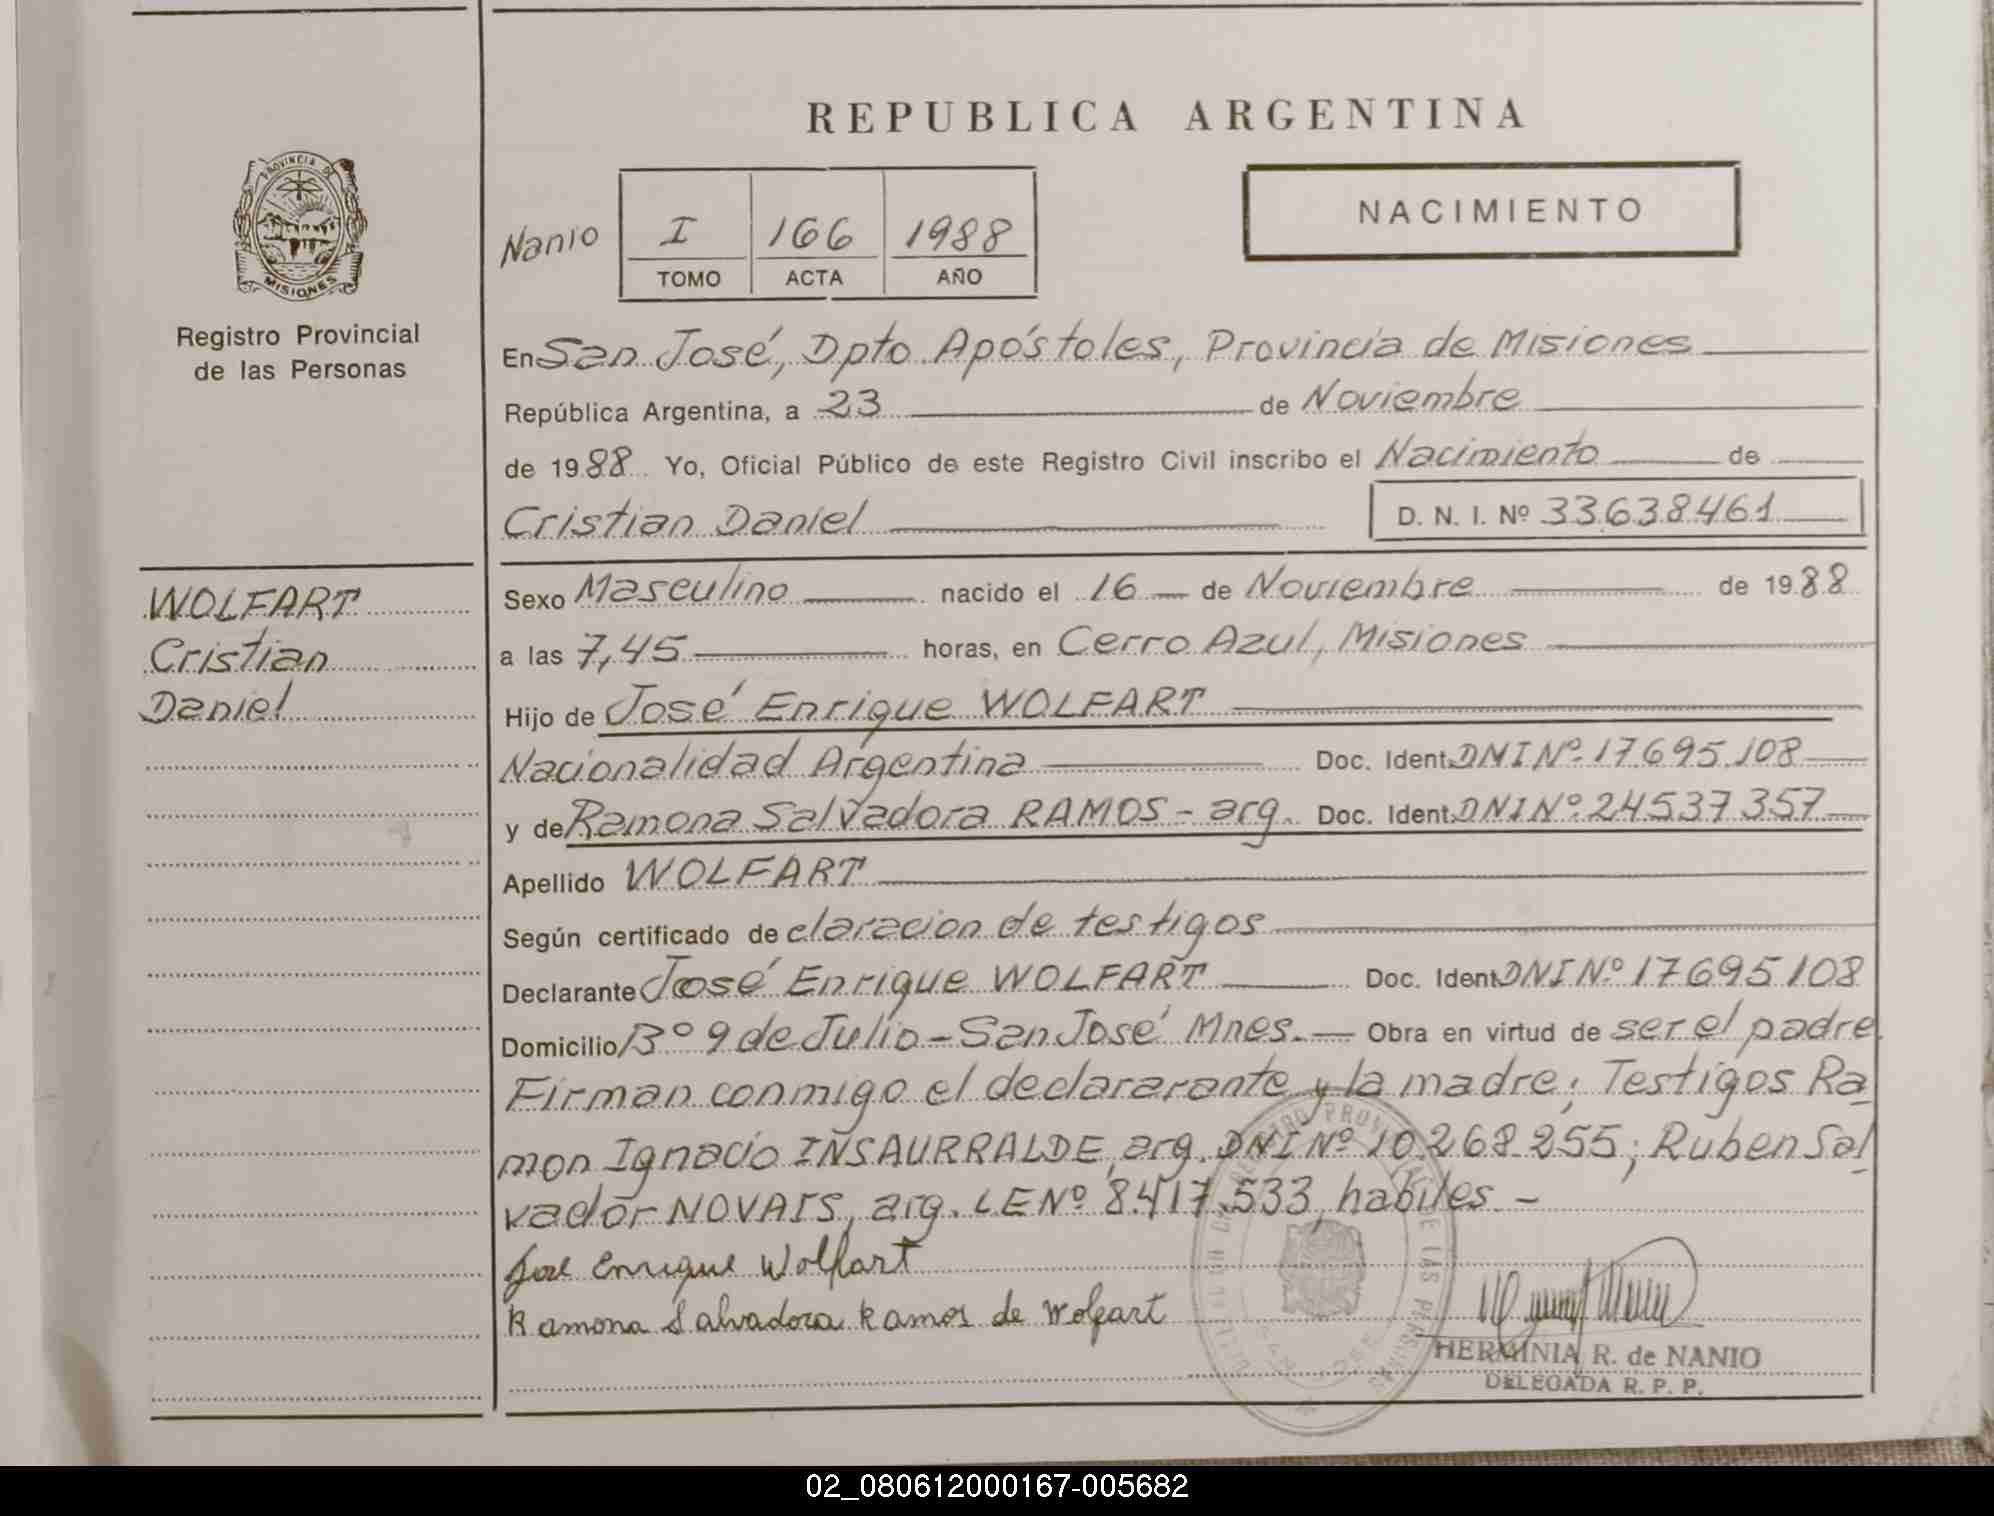 REPUBLICA ARGENTINA
PROVINCIA DE
MISIONES
Registro Provincial
de las Personas
Nanio
I 166 1988
TOMO ACTA AÑO
NACIMIENTO
En San José, Dpto Apóstoles, Provincia de Misiones
República Argentina, a 23 de Noviembre
de 1988 Yo, Oficial Público de este Registro Civil inscribo el Nacimiento de
Cristian Daniel D. N. I. Nº 33638461
WOLFART
Cristian
Daniel
Sexo Masculino nacido el 16 de Noviembre de 1988
a las 7,45 horas, en Cerro Azul, Misiones
Hijo de José Enrique WOLFART
Nacionalidad Argentina Doc. Ident. DNI Nº 17695.108
y de Ramona Salvadora RAMOS - arg. Doc. Ident. DNI Nº 24537357
Apellido WOLFART
Según certificado de claracion de testigos
Declarante José Enrique WOLFART Doc. Ident DNI Nº 17695108
Domicilio Bº 9 de Julio - San José Mnes. Obra en virtud de ser el padre.
Firman conmigo el declararante y la madre; Testigos Ra
mon Ignacio INSAURRALDE, arg. DNI Nº 10.268.255; Ruben Sal
vador NOVAIS, arg. LE Nº 8.417.533, habiles. -
José Enrique Wolfart
Ramona Salvadora Ramos de Wolfart
HERMINIA R. de NANIO
DELEGADA R. P. P.
02_080612000167-005682